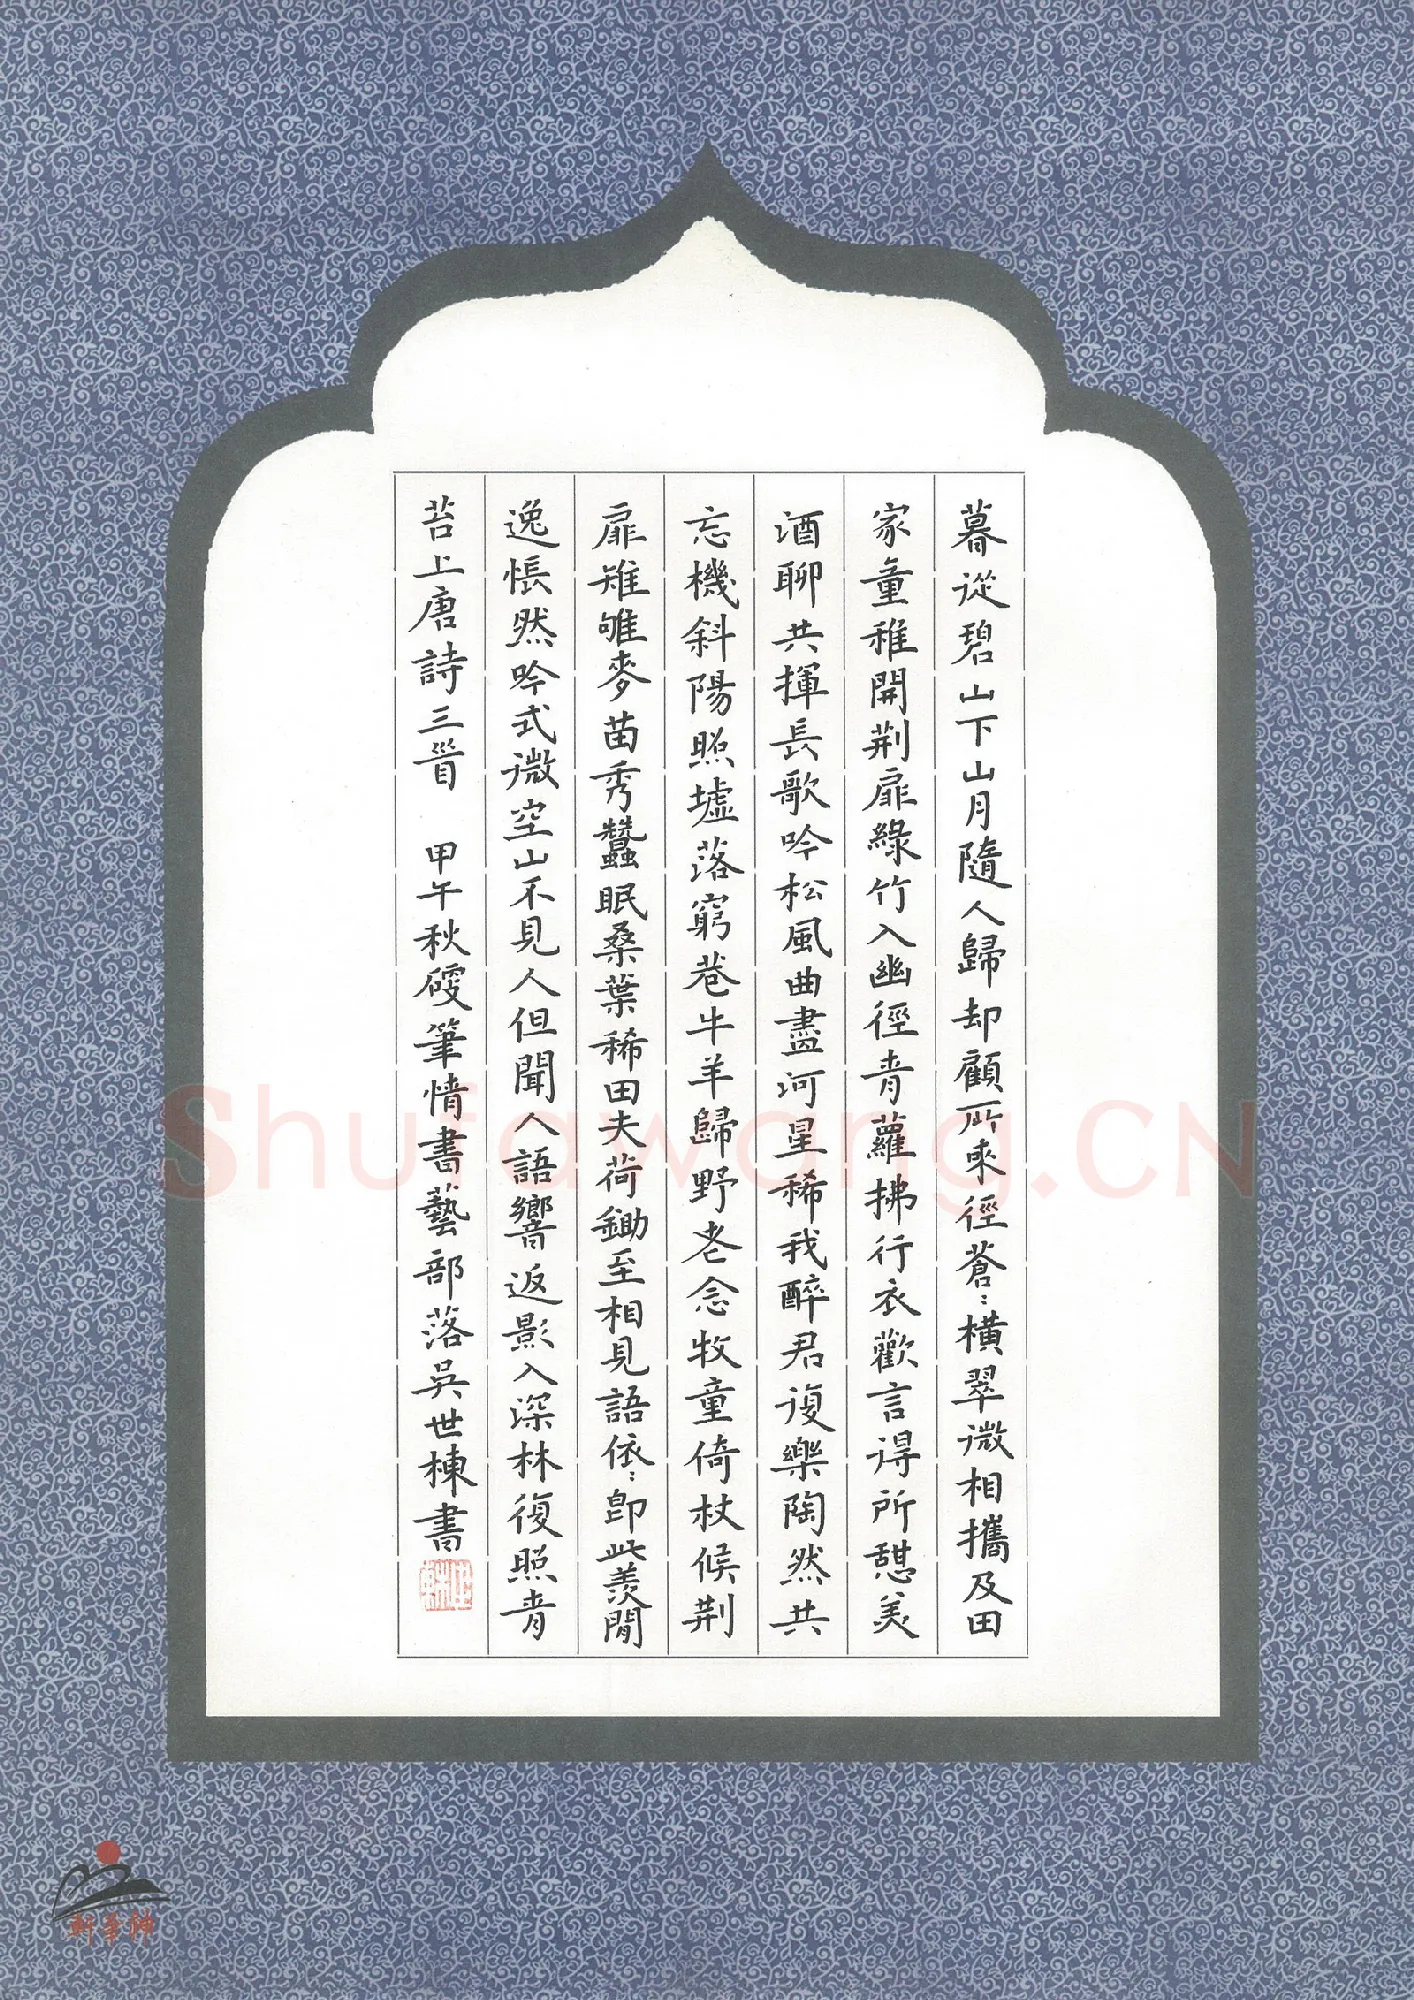 暮從碧山下山月隨人歸却顧所來徑蒼〻橫翠微相攜及田
家童稚開荆扉綠竹入幽徑青蘿拂行衣歡言得所憩美
酒聊共揮長歌吟松風曲盡河星稀我醉君復樂陶然共
忘機斜陽照墟落窮巷牛羊歸野老念牧童倚杖候荆
扉雉雊麥苗秀蠶眠桑葉稀田夫荷鋤至相見語依〻即此羨閒
逸悵然吟式微空山不見人但聞人語響返影入深林復照青
苔上唐詩三首 甲午秋硬筆情書藝部落吳世棟書
Shufawang.CN